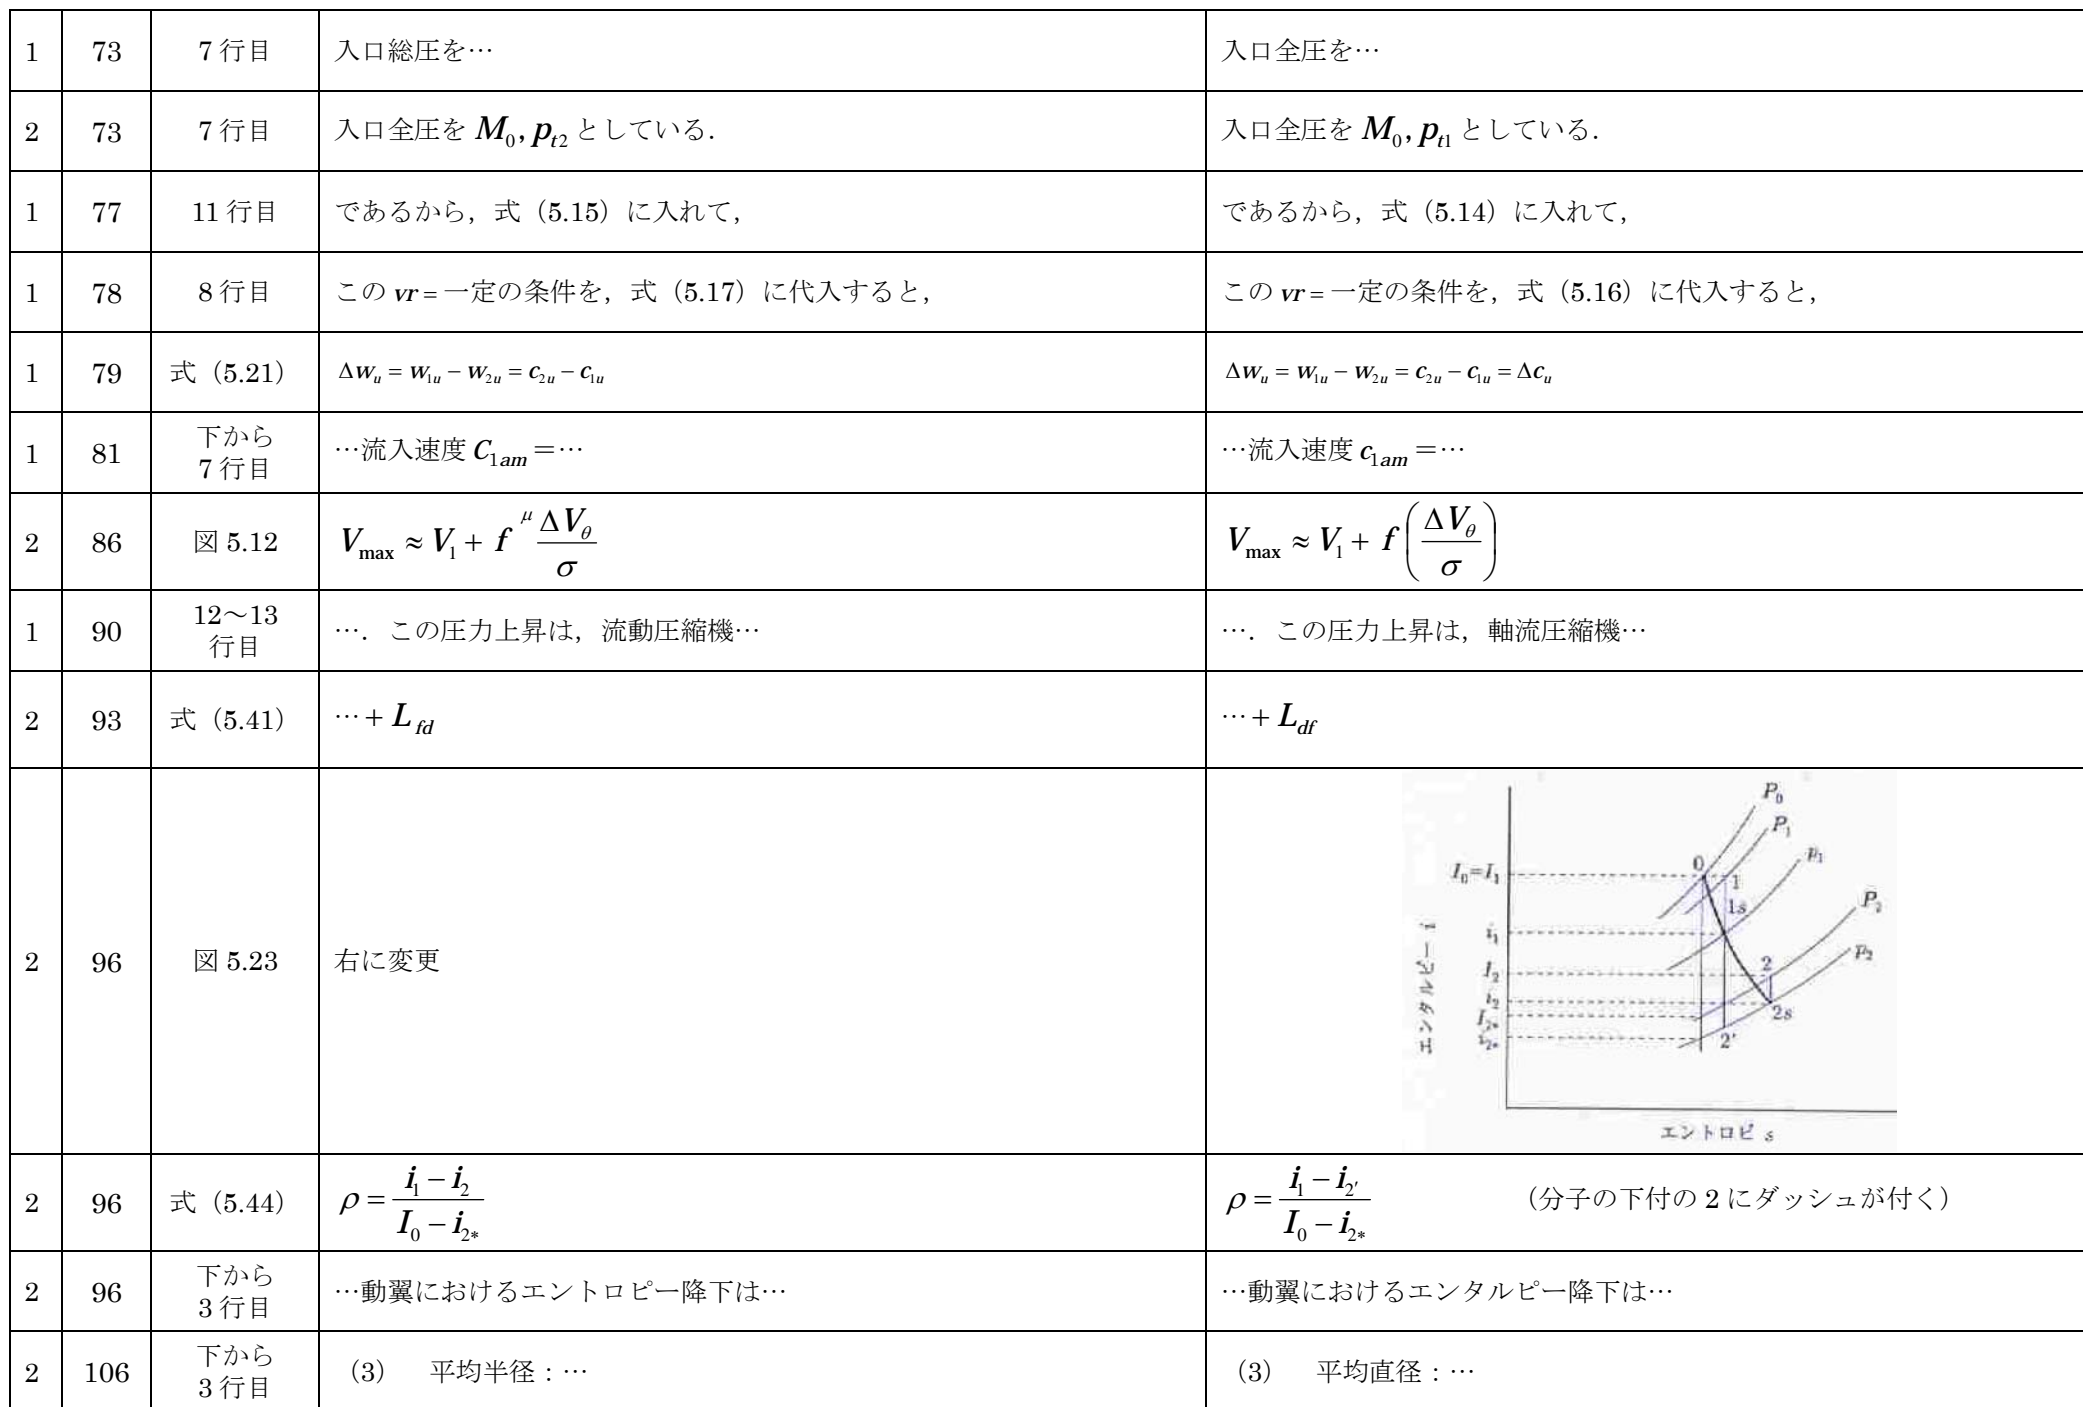 1 73 7 行目 入口総圧を… 入口全圧を…
2 73 7 行目 入口全圧を M₀, pₜ₂ としている. 入口全圧を M₀, pₜ₁ としている.
1 77 11 行目 であるから，式（5.15）に入れて， であるから，式（5.14）に入れて，
1 78 8 行目 この vr = 一定の条件を，式（5.17）に代入すると， この vr = 一定の条件を，式（5.16）に代入すると，
1 79 式（5.21） Δw_u = w_{1u} − w_{2u} = c_{2u} − c_{1u} Δw_u = w_{1u} − w_{2u} = c_{2u} − c_{1u} = Δc_u
1 81 下から
7 行目 …流入速度 C_{1am} ＝… …流入速度 c_{1am} ＝…
2 86 図 5.12 V_{max} ≈ V_1 + f^μ ΔV_θ/σ V_{max} ≈ V_1 + f(ΔV_θ/σ)
1 90 12～13
行目 …．この圧力上昇は，流動圧縮機… …．この圧力上昇は，軸流圧縮機…
2 93 式（5.41） …+ L_{fd} …+ L_{df}
2 96 図 5.23 右に変更
P₀
P₁
p₁
0
I₀=I₁
1
1s
P₂
i₁
p₂
I₂
2
i₂
2s
I_{2*}
i_{2*}
2′
エンタルピー i
エントロピ s
2 96 式（5.44） ρ = (i_1 − i_2)/(I_0 − i_{2*}) ρ = (i_1 − i_{2′})/(I_0 − i_{2*}) （分子の下付の 2 にダッシュが付く）
2 96 下から
3 行目 …動翼におけるエントロピー降下は… …動翼におけるエンタルピー降下は…
2 106 下から
3 行目 （3） 平均半径：… （3） 平均直径：…